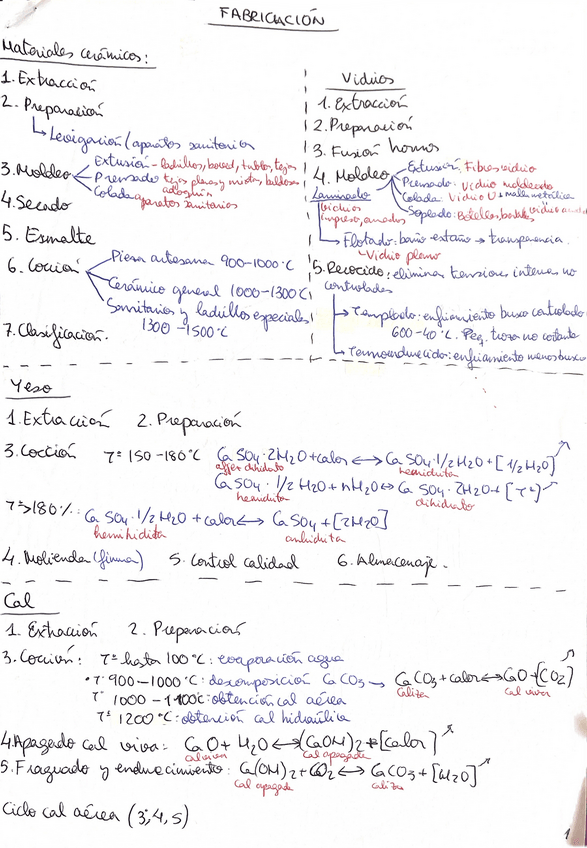 FABRICACIÓN
Materiales cerámicos:
1. Extracción
2. Preparación
Levigación/aparatos sanitarios
3. Moldeo
Extusión - ladillos, boved, tubos, tejas
Prensado tejas planas y mixtas, baldosa
Colada aparatos sanitarios
4. Secado
5. Esmalte
6. Cocción
Pieza artesana 900-1000°C
Cerámico general 1000-1300°C
Sanitarios y ladillos especiales
1300-1500°C
7. Clasificación.
Vidrios
1. Extracción
2. Preparación
3. Fusión hornos
4. Moldeo
Extusión: Fibra vidrio
Prensado: vidrio moldeado
Colada: Vidrio U + malla metálica
Soplado: Botellas,
Laminado
Vidrios
impreso, armados
Flotado: baño estaño → transparencia.
Vidrio plano
5. Recocido: eliminar tensiones internas no
controladas
Templado: enfriamiento brusco controlado
600-40°C. Peq. trozos no cortante
Termoendurecido: enfriamiento menos brusco
Yeso
1. Extracción 2. Preparación
3. Cocción T= 150-180°C CaSO4·2H2O + calor ↔ CaSO4·1/2H2O + [1/2H2O]
dihidrato hemidrita
CaSO4·1/2H2O + nH2O ↔ CaSO4·2H2O + [Tª]
dihidrato
T>180%: CaSO4·1/2H2O + calor ↔ CaSO4 + [2H2O]
hemihidrita anhidrita
4. Molienda (finura) 5. Control calidad 6. Almacenaje.
Cal
1. Extracción 2. Preparación
3. Cocción: Tª hasta 100°C: evaporación agua
Tª 900-1000°C: descomposición CaCO3 → CaCO3 + calor ↔ CaO + [CO2]
caliza cal viva
Tª 1000-1100°C: obtención cal aérea
Tª 1200°C: obtención cal hidráulica
4. Apagado cal viva: CaO + H2O ↔ (CaOH)2 + [calor]
cal viva cal apagada
5. Fraguado y endurecimiento: Ca(OH)2 + CO2 ↔ CaCO3 + [H2O]
cal apagada caliza
Ciclo cal aérea (3,4,5)
1